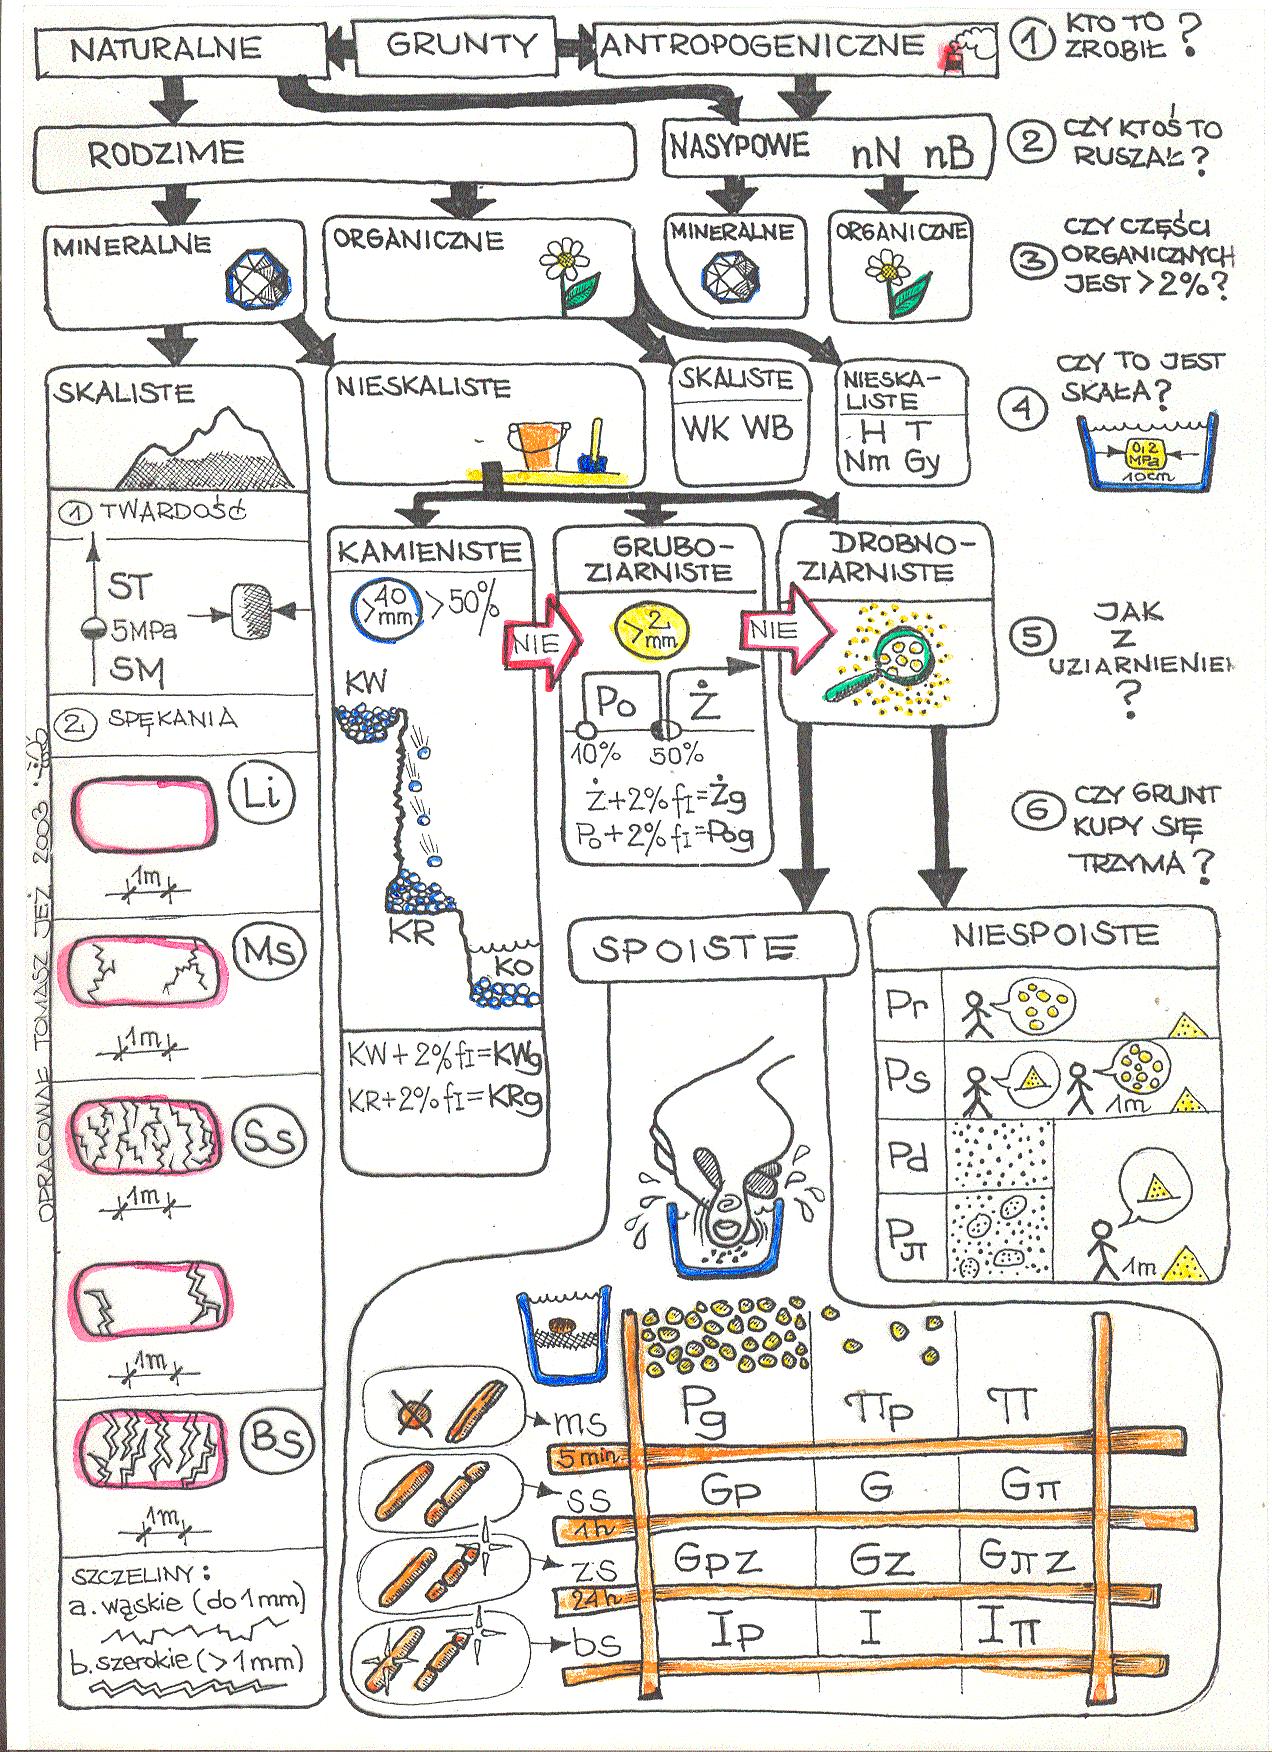 NATURALNE
GRUNTY
ANTROPOGENICZNE
1 KTO TO
ZROBIŁ?
RODZIME
NASYPOWE nN nB
2 CZY KTOŚ TO
RUSZAŁ?
MINERALNE
ORGANICZNE
MINERALNE
ORGANICZNE
3 CZY CZĘŚCI
ORGANICZNYCH
JEST >2%?
SKALISTE
NIESKALISTE
SKALISTE
WK WB
NIESKA-
LISTE
H T
Nm Gy
4 CZY TO JEST
SKAŁA?
0,2
MPa
10cm
1 TWARDOŚĆ
ST
5MPa
SM
2. SPĘKANIA
Li
1m
Ms
1m
Ss
1m
1m
Bs
1m
SZCZELINY:
a. wąskie (do 1mm)
b. szerokie (>1mm)
OPRACOWAŁ TOMASZ JEŻ 2003
KAMIENISTE
>40
mm >50%
NIE
KW
KR
KO
KW + 2% fI = KWg
KR + 2% fI = KRg
GRUBO-
ZIARNISTE
>2
mm
NIE
Po Ż
10% 50%
Ż+2% fI = Żg
Po+2% fI = Pog
DROBNO-
ZIARNISTE
5 JAK
Z
UZIARNIENIEM
?
6 CZY GRUNT
KUPY SIĘ
TRZYMA?
SPOISTE
NIESPOISTE
Pr
Ps
1m
Pd
Pπ
1m
Pg πp π
ms
5 min
ss
Gp G Gπ
1h
zs
Gpz Gz Gπz
24h
bs
Ip I Iπ